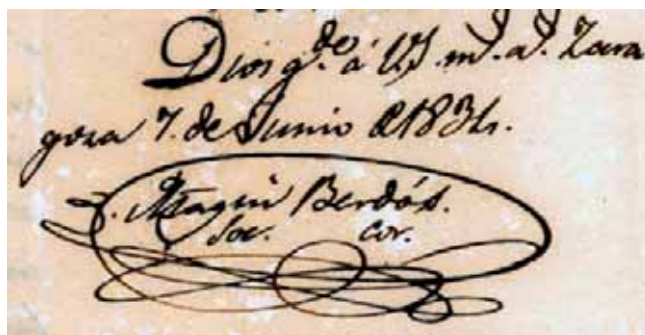 Dios g.de á V.S. m.s a.s Zara
goza 7. de Junio d 1834.
Joaquin Berdós.
Soc. cor.